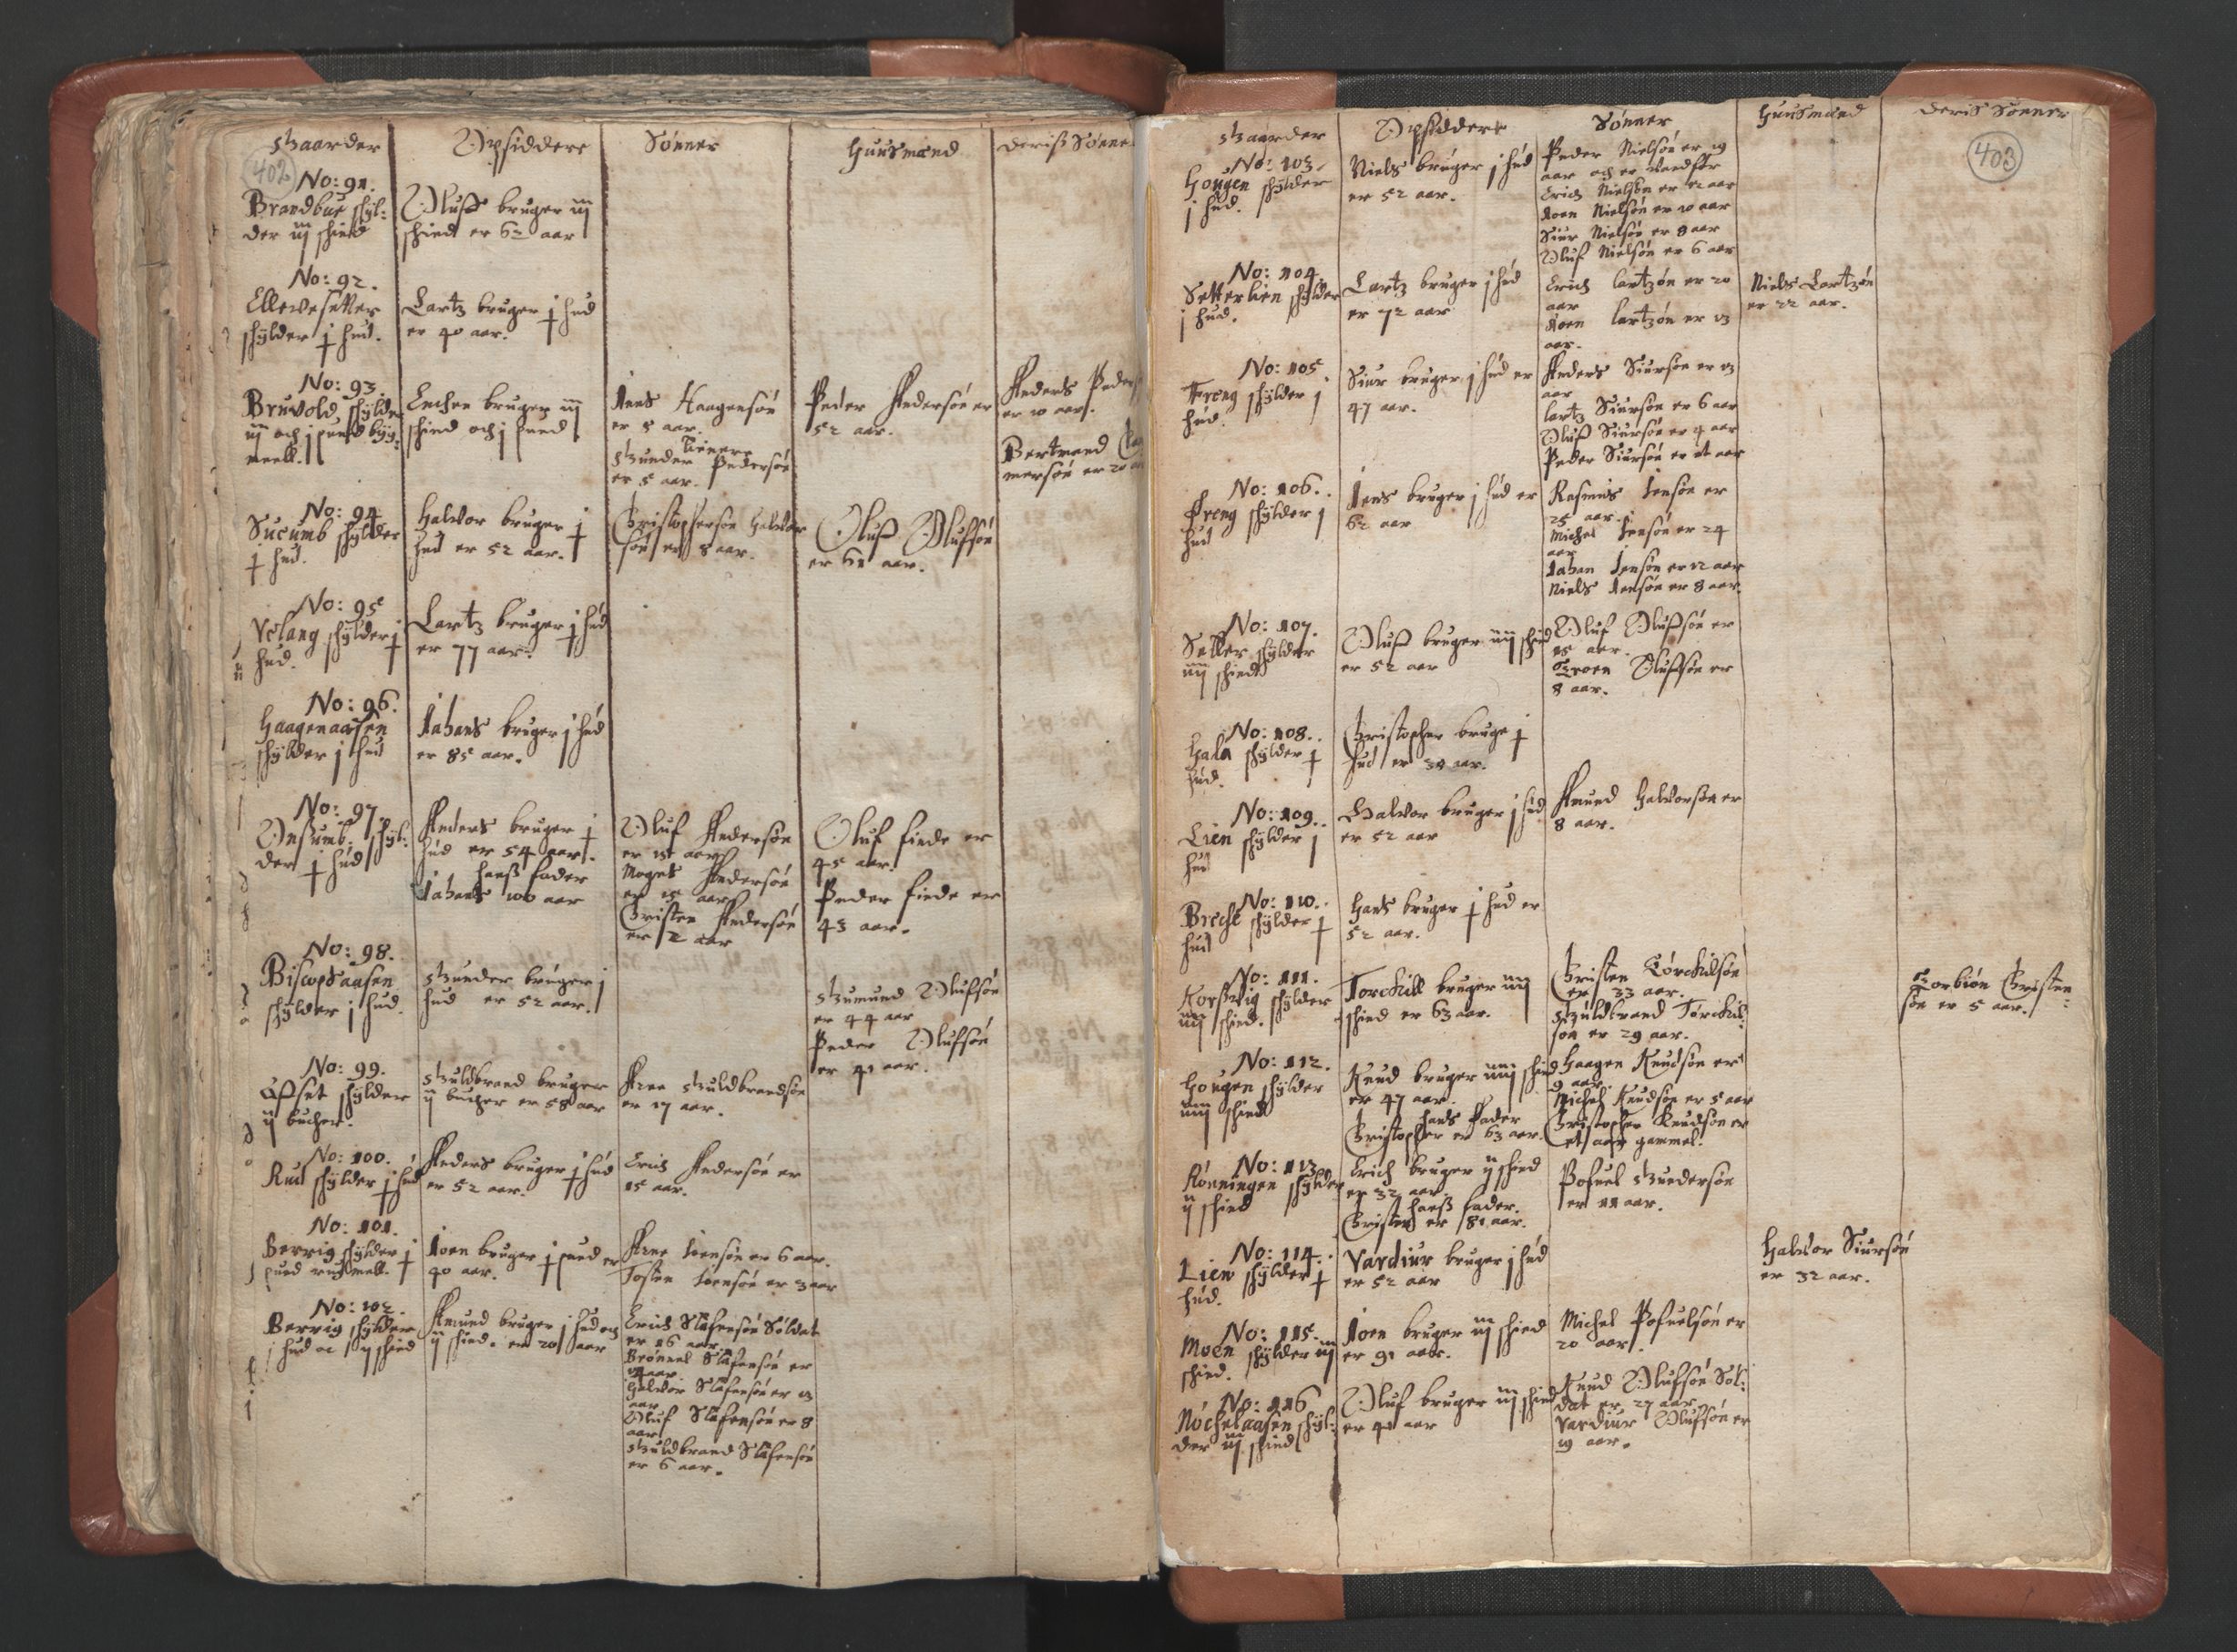 Gaarder
Opsiddere
Sønner
Huusmænd
Deriß Sønner
402
No: 91.
Brandbue skyl:
der iij schind
Oluff bruger iij
schind er 62 aar
No: 92.
Ellevesetter
skylder ɉ hud.
Lartz bruger ɉ hud
er 40 aar.
No: 93.
Bruvold skylder
iij och j pund byg:
meell.
bruger iij
schind och j pund
Jens Haagensøn
er 5 aar.
tienere
Gunder Pedersøn
er 5 aar.
Peder Andersøn er
52 aar.
Anders Peders
er 10 aar.
Bertrand
mersøn er 20
No: 94
Sucumb skylder
ɉ hud.
Halvor bruger ɉ
hud er 52 aar.
Christophersøn Halvor
søn er 8 aar.
Oluff Oluffsøn
er 61 aar.
No: 95
Velang skylder ɉ
hud.
Lartz bruger ɉ hud
er 77 aar.
No: 96.
Haagenaasen
skylder j hud
Johans bruger j hud
er 85 aar.
No: 97
Onsumb. skyl:
der ɉ hud
Anders bruger ɉ
hud er 54 aar.
hans fader
Johans 100 aar
Oluf Andersøn
er aar
Mogns Andersøn
er aar
Christen Andersøn
er 2 aar
Oluf finde er
45 aar.
Peder finde er
43 aar.
No: 98.
Biscopsaasen
skylder j hud.
Gunder bruger j
hud er 52 aar.
Gumund Olufsøn
er 44 aar
Peder Olufsøn
er 41 aar.
No: 99.
Opset skylder
ij bucher.
Guldbrand bruger
ij bucher er 58 aar
Arne Guldbrandsøn
er 17 aar.
No: 100.
Rud skylder ɉ hud
Anders bruger ɉ hud
er 52 aar.
Erich Andersøn er
15 aar.
No: 101.
Berrig skylder ɉ
pund rugmell.
Joen bruger ɉ pund er
40 aar.
Arne Joensøn er 6 aar.
Tosten Joensøn er 3 aar
No: 102.
Berrig skylder
j hud oc ij schind
Amund bruger j hud och
ij schind. er 20 aar
Erich Stafensøn Soldat
er 16 aar.
Brønnel Stafensøn er
14 aar.
Halvor Stafensøn er 13
aar
Oluf Stafensøn er 8
aar
Guldbrand Stafensøn
er 6 aar.
Gaarder
Opsiddere
Sønner
Huusmænd
Deris Sønner
403
No: 103.
Hougen skylder
j hud.
Niels bruger j hud
er 52 aar.
Peder Nielsøn er 19
aar och er vandfør
Erich Nielsøn er 12 aar
Joen Nielsøn er 10 aar
Siur Nielsøn er 8 aar
Oluf Nielsøn er 6 aar
No: 104.
Setterlien skylder
j hud.
Lartz bruger j hud
er 72 aar
Erich lartzøn er 20
aar
Joen lartzøn er 13
aar.
Niels Lartzøn
er 22 aar.
No: 105.
Freng skylder j
hud.
Siur bruger j hud er
47 aar.
Anders Siursøn er 13
aar
lartz Siursøn er 6 aar
Oluf Siursøn er 4 aar
Peder Siursøn er et aar
No: 106.
Freng skylder j
hud
Jens bruger j hud er
62 aar
Rasmus Jensøn er
25 aar.
Michel Jensøn er 24
aar
Johan Jensøn er 12 aar
Niels Jensøn er 8 aar.
No: 107.
Setter skylder
iiij schind
Oluff bruger iiij schind
er 52 aar
Oluf Oluffsøn er
15 aar.
Troen Oluffsøn er
8 aar.
No: 108.
Hala skylder ɉ
hud.
Christopher bruge ɉ
hud er 30 aar.
No: 109.
Lien skylder j
hud
Halvor bruger j hud
er 52 aar
Amund Halvorsøn er
8 aar.
No: 110.
Breche skylder ɉ
hud
Hans bruger ɉ hud er
52 aar.
No: 111.
Korßvig skylder
iiij schind.
Torchill bruger iiij
schind er 63 aar.
Christen Torchilsøn
er 33 aar.
Guldbrand Torchil:
søn er 29 aar.
Torbiøn Christen:
søn er 5 aar.
No: 112.
Hougen skylder
iiij schind
Knud bruger iiij schind
er 47 aar.
hans Fader
Christopher er 63 aar.
Haagen Knudsøn er
9 aar.
Michel Knudsøn er 5 aar
Christopher Knudsøn er
et aar gammel.
No: 113
Rønningen skylder
ij schind
Erich bruger ij schind
er 32 aar.
hans fader.
Christen er 81 aar.
Pofuel Gundersøn
er 11 aar.
No: 114.
Lien skylder ɉ
hud.
Vardiur bruger j hud
er 52 aar
Halvor Siursøn
er 32 aar.
No: 115.
Moen skylder iij
schind.
Joen bruger iij schind
er 91 aar.
Michel Pofuelsøn er
20 aar.
No: 116
Nøchelaasen skyl:
der iij schind
Oluf bruger iij schind
er 41 aar
Knud Olufsøn Sol:
dat er 27 aar
Vardiur Olufsøn er
19 aar.